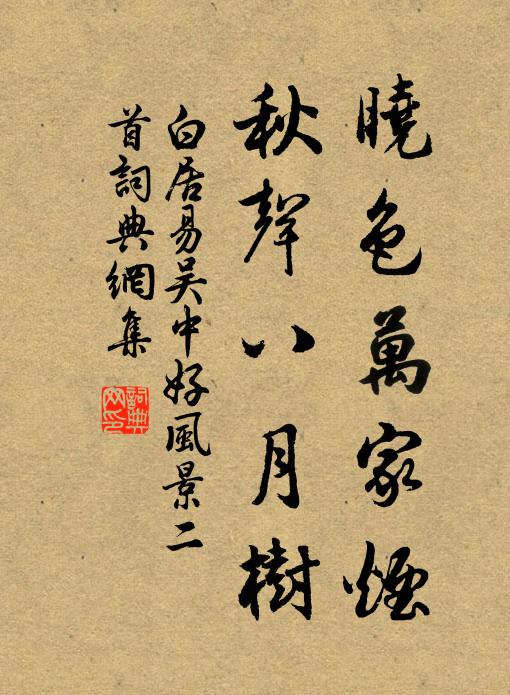 曉色萬家煙
秋聲八月樹
白居易吳中好風景二
首詞典網集
詞典